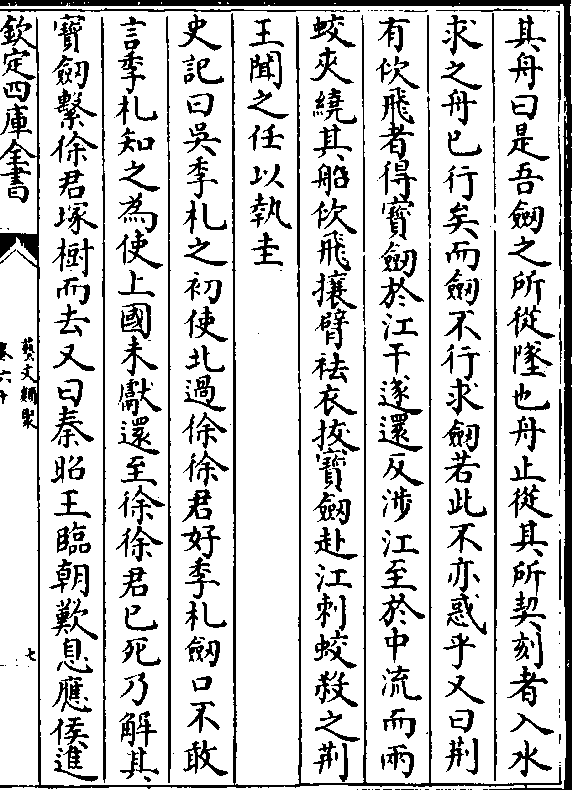 其舟曰是吾劒之所從墜也舟止從其所契刻者入水
求之舟已行矣而劒不行求劒若此不亦惑乎又曰荆
有佽飛者得寳劒於江干遂還反渉江至於中流而兩
蛟夾繞其船佽飛攘臂袪衣拔寳劒赴江刺蛟殺之荆
王聞之任以執圭
史記曰吳季札之初使北過徐徐君好季札劒口不敢
言季札知之為使上國未獻還至徐徐君已死乃解其
寳劒繫徐君塚樹而去又曰秦昭王臨朝歎息應侯進
欽定四庫全書
藝文類聚
卷六十
七